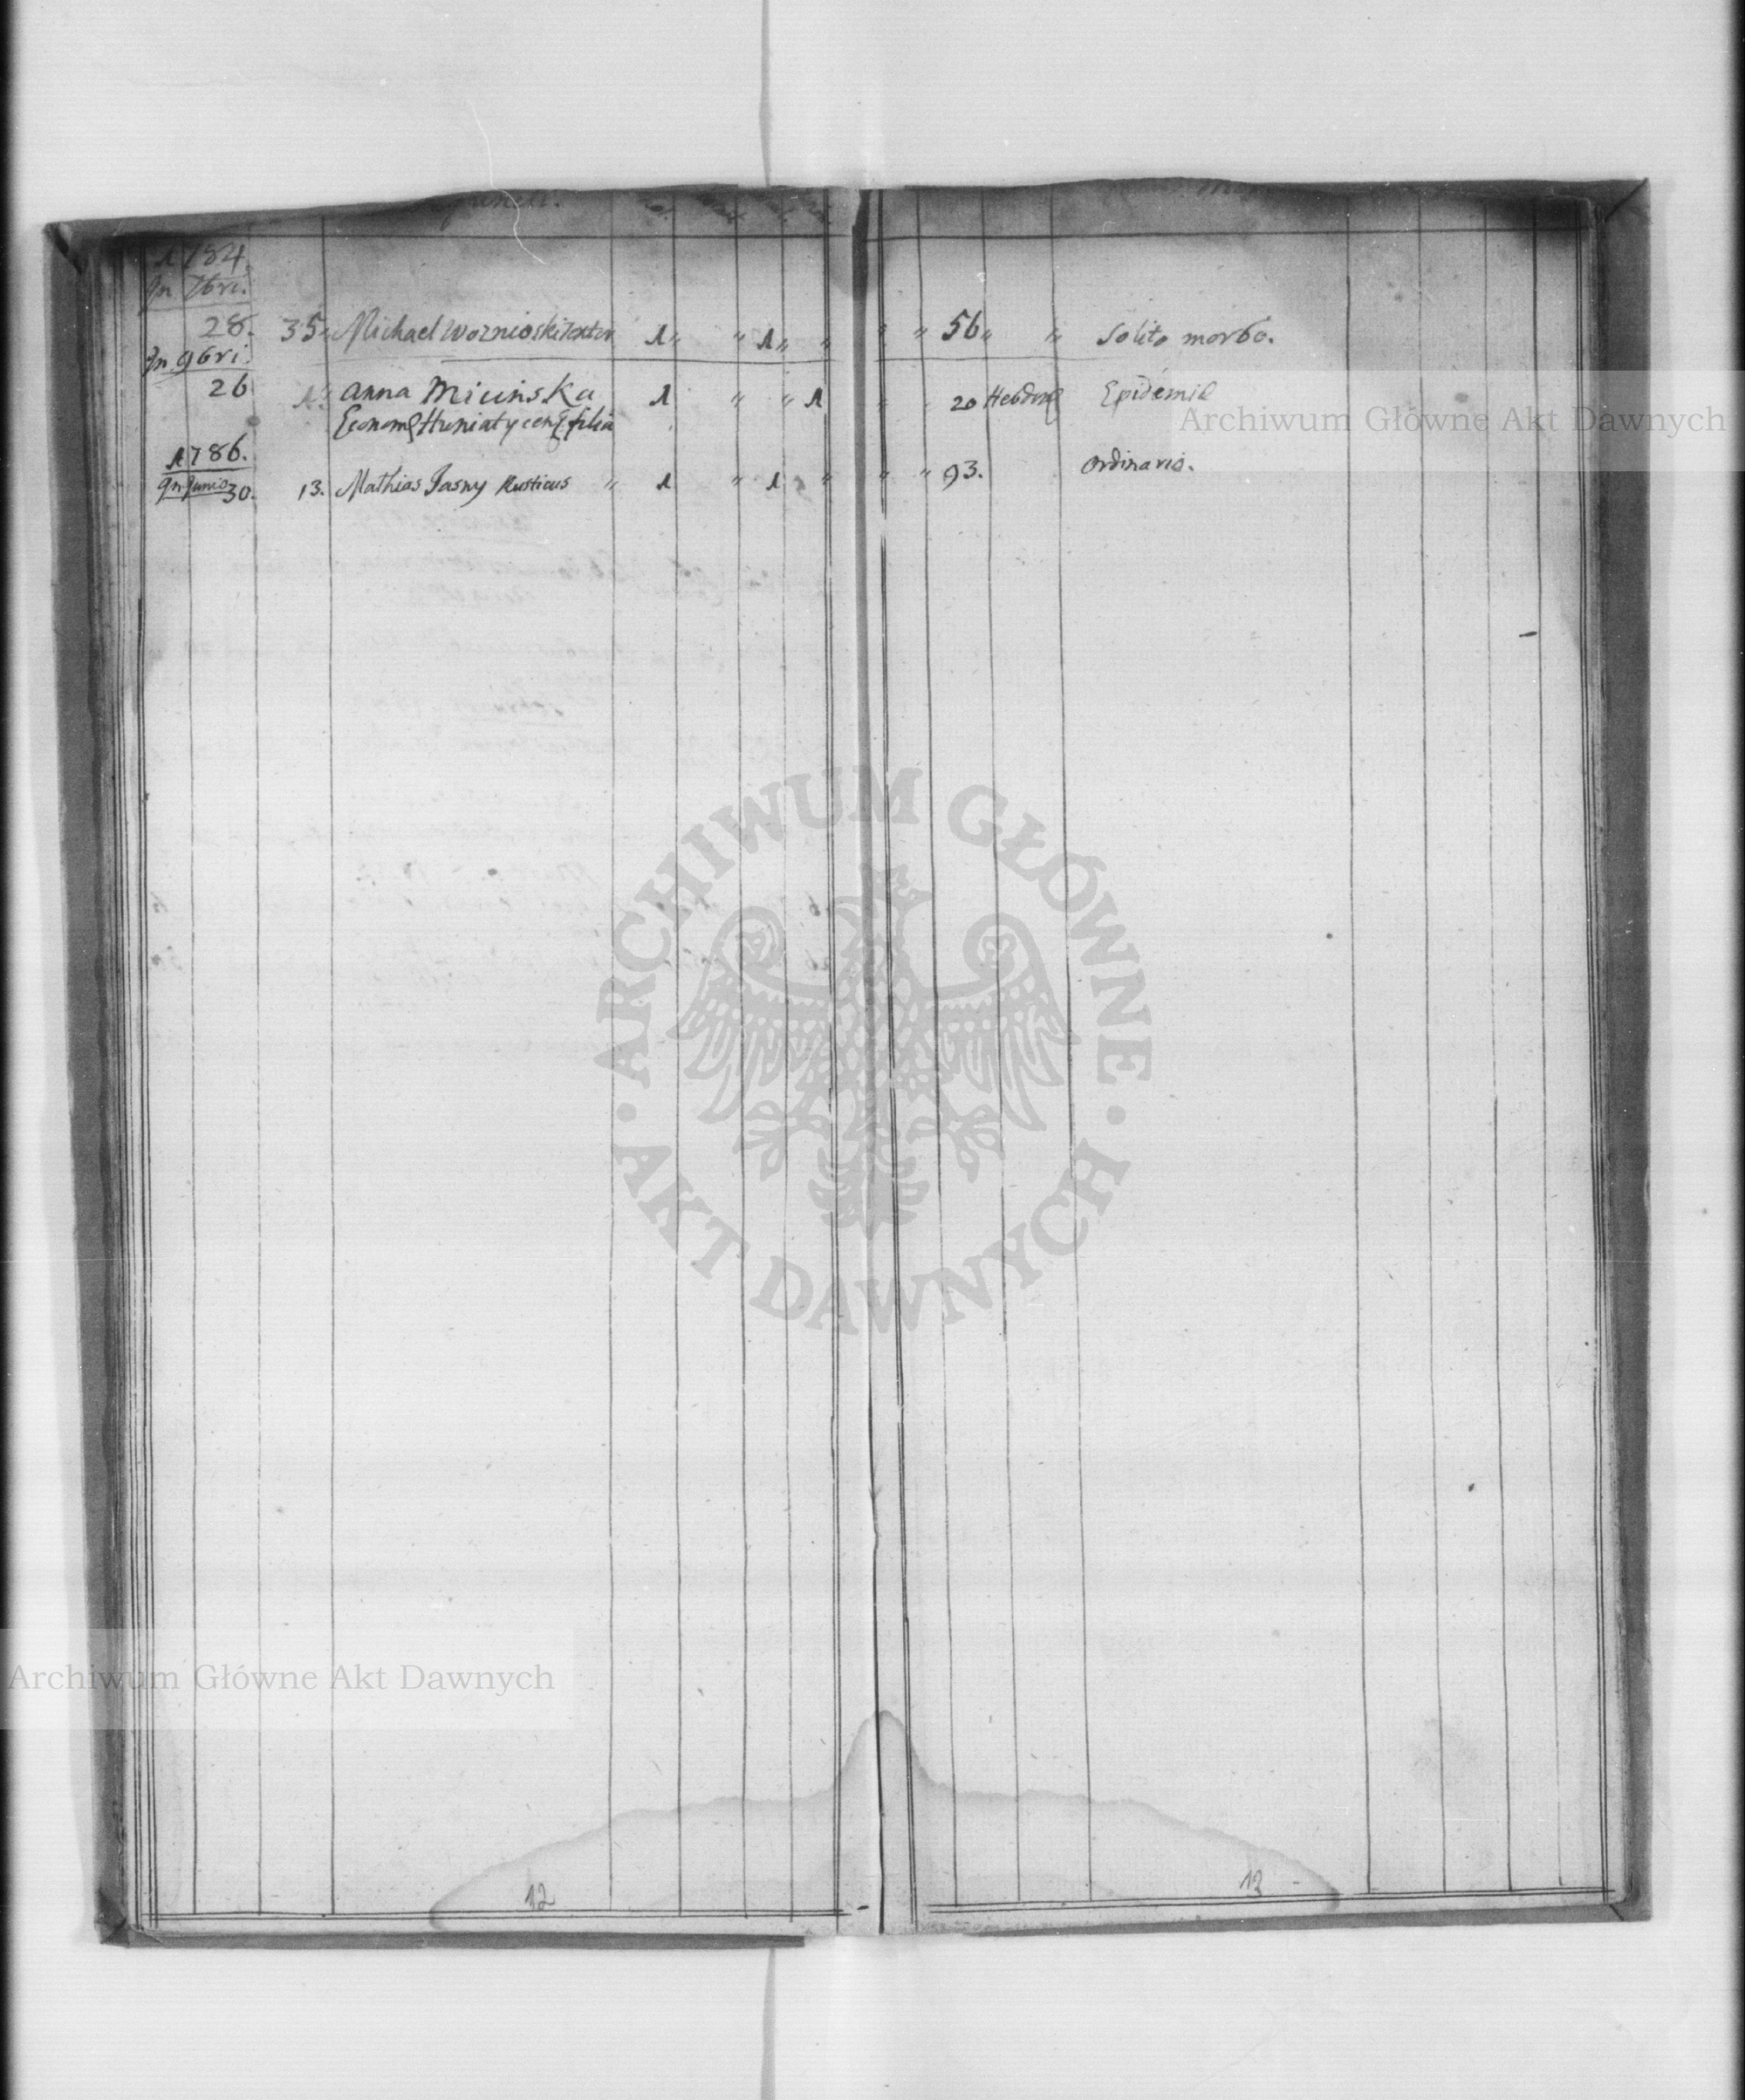 1784
In 7bri.
28. 35 „ Michael Woznioski textor 1 „ „ 1 „ „ „ „ 56 „ „ Solito morbo.
In 9bri.
26 1. Anna Miciinska 1 „ „ 1 „ 20 Hebdom Epidemia
Econom Huniatycen filia
1786.
In Junio 30. 13. Mathias Jasny Rusticus „ 1 „ 1 „ „ „ 93. Ordinario.
Archiwum Główne Akt Dawnych
ARCHIWUM GŁÓWNE
AKT DAWNYCH
Archiwum Główne Akt Dawnych
12
12